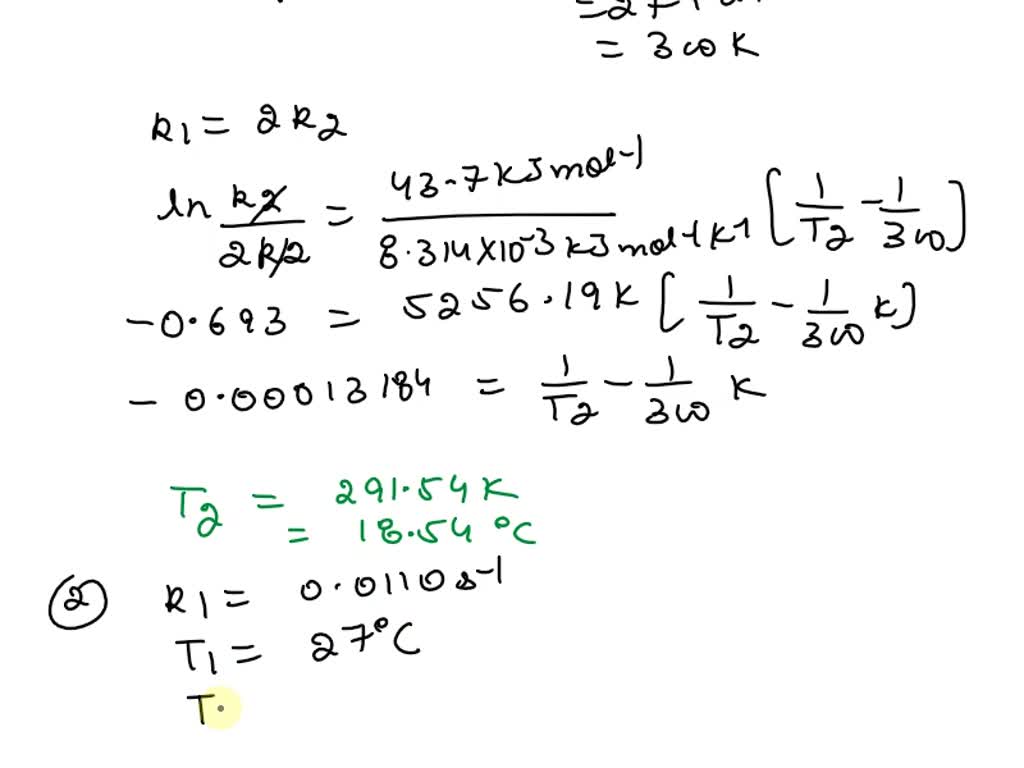 = 300 K
k1 = 2k2
ln k2/2k2 = 43.7 kJ mol-1 / 8.314×10-3 kJ mol-1 K-1 [1/T2 - 1/300]
-0.693 = 5256.19 K [1/T2 - 1/300 K]
- 0.00013184 = 1/T2 - 1/300 K
T2 = 291.54 K
= 18.54 °C
② k1 = 0.0110 s-1
T1 = 27°C
T